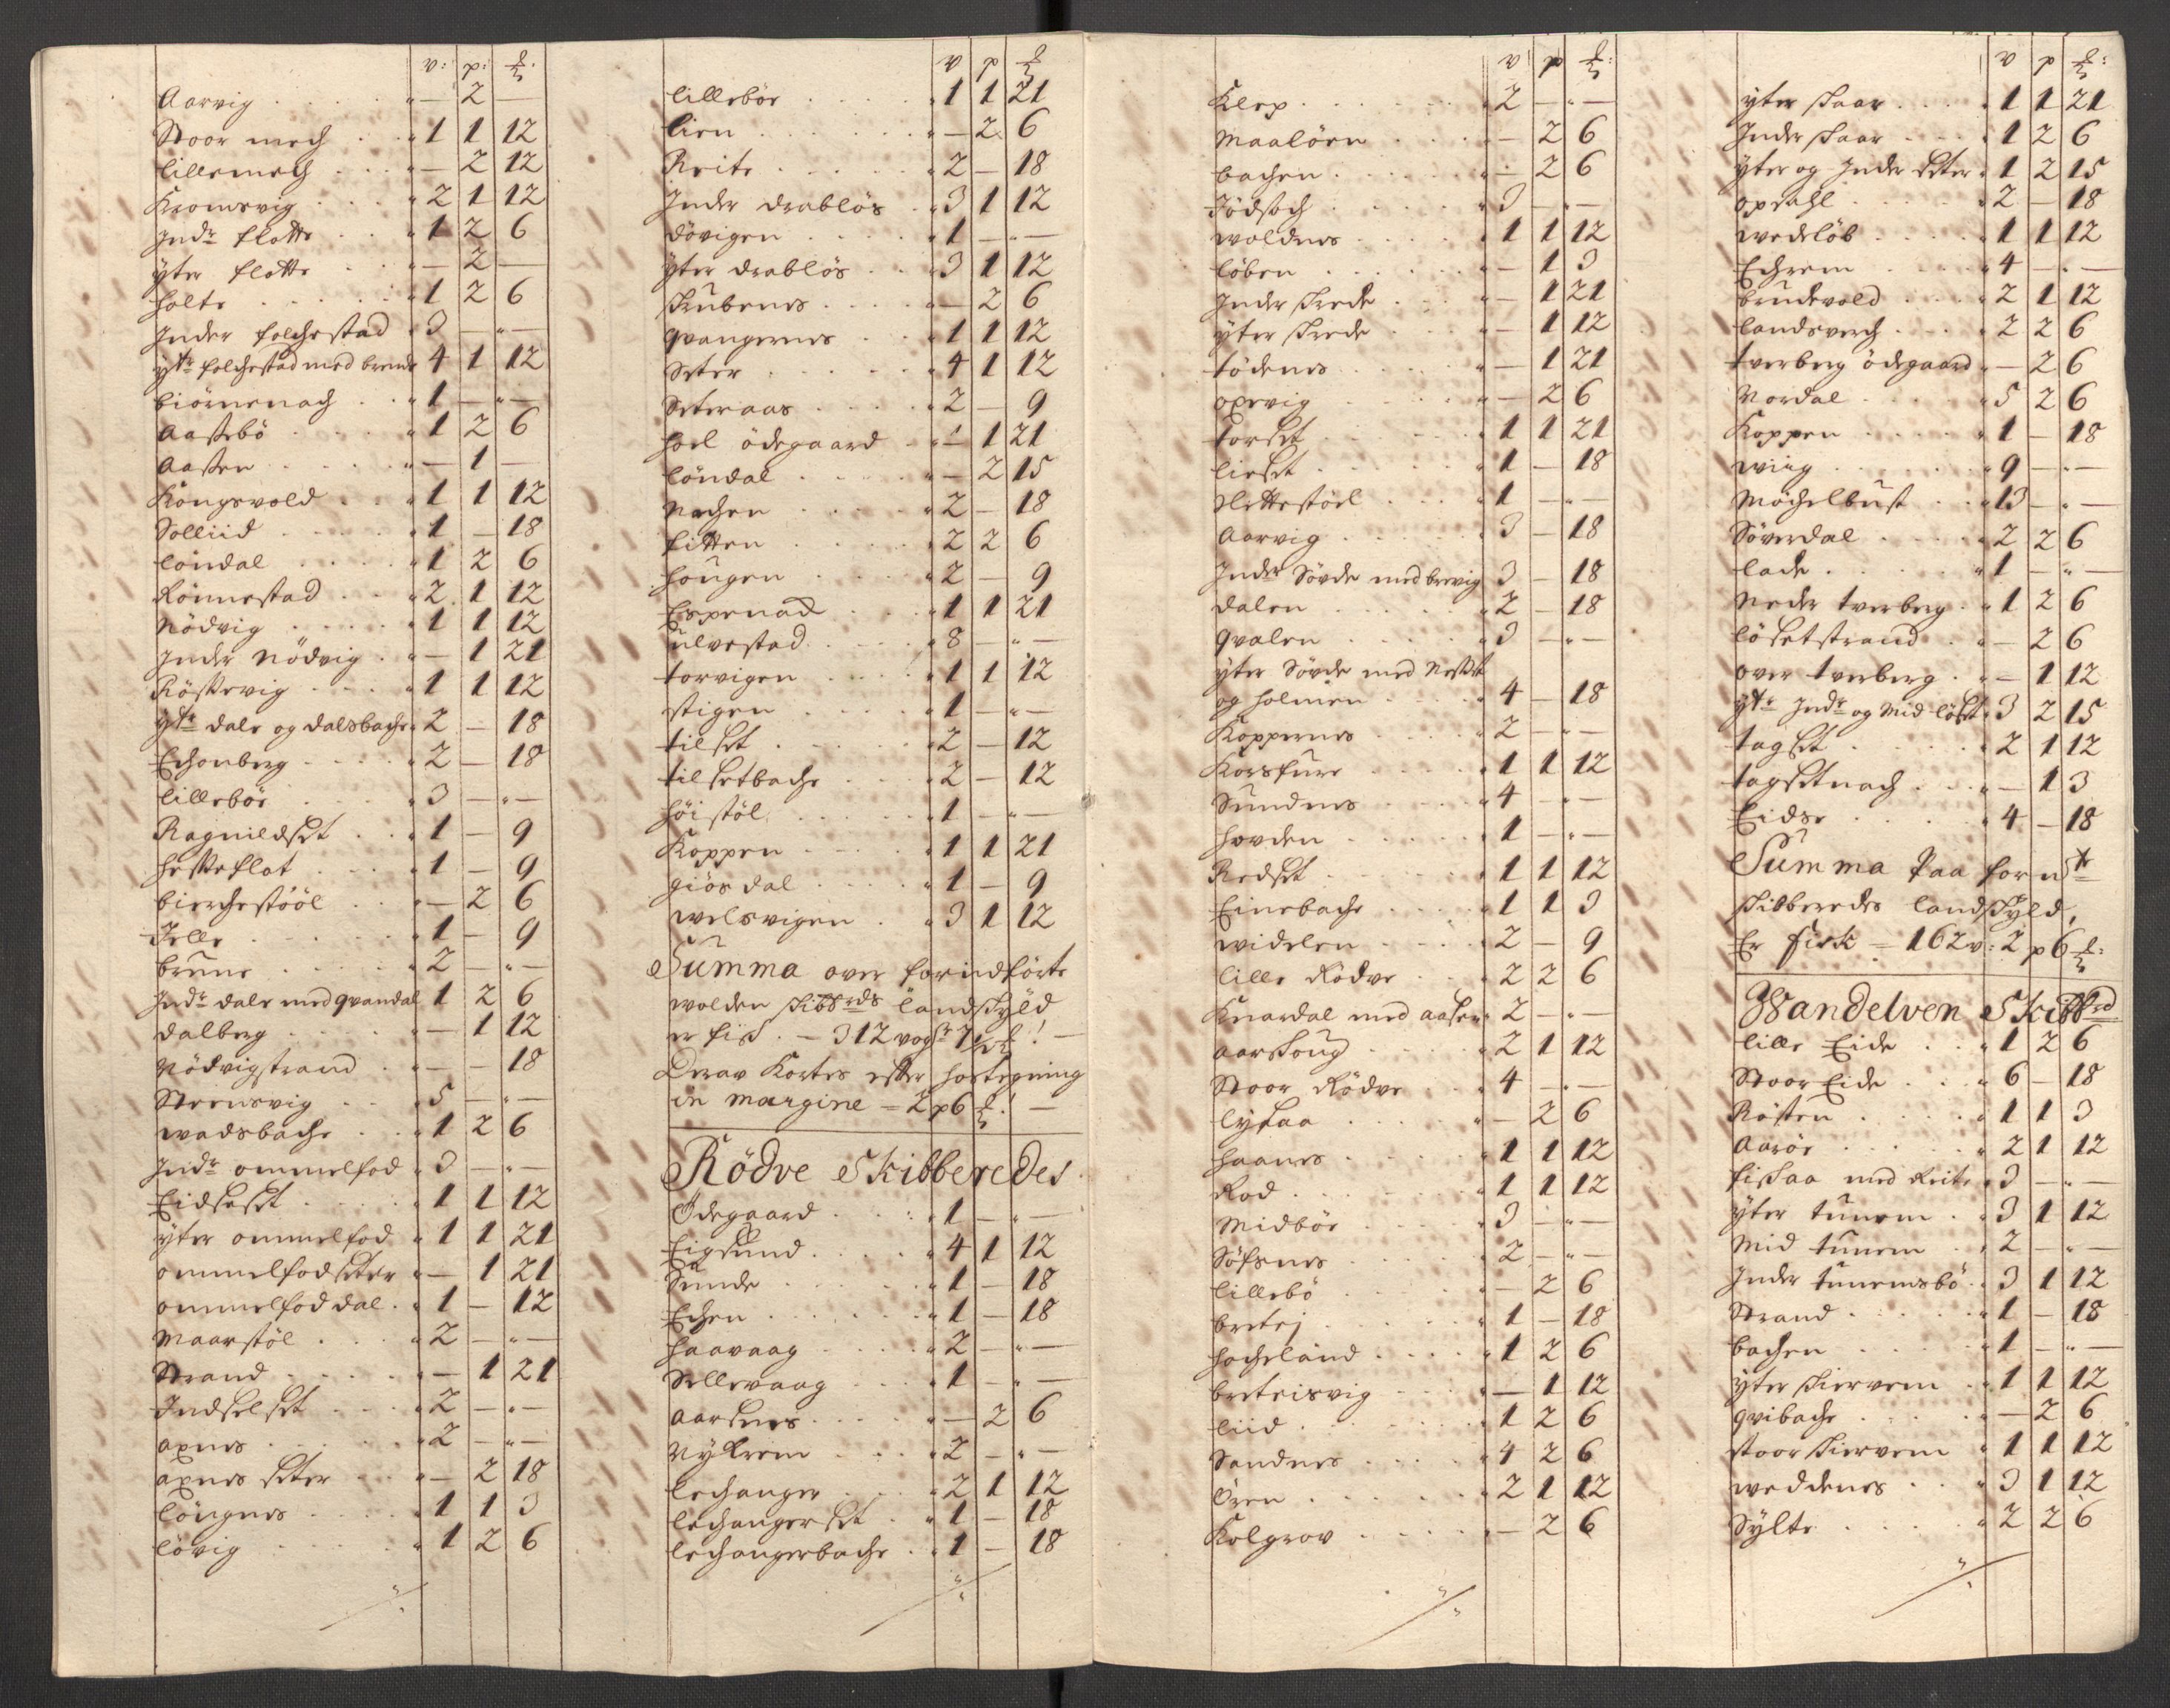 v: p: ℔:
Aarvig — 2 —
Stoor mech 1 1 12
lillemech — 2 12
Kromsvig 2 1 12
Indr flotte 1 2 6
yter flotte — 2 —
holte 1 2 6
Inder folchestad 3 — —
ytr folchestad med brende 4 1 12
biörnenach 1 — —
Aastebö 1 2 6
Aasten — 1 —
Kongsvold 1 1 12
Solliid 1 — 18
londal 1 2 6
Rönnestad 2 1 12
Nödvig 1 1 12
Inder Nödvig — 1 21
Röstevig 1 1 12
ytr dale og dalsbache 2 — 18
Echonberg 2 — 18
lillebör 3 — —
Ragnildset 1 — 9
hesteflot 1 — 9
bierchestööl — 2 6
Jelle 1 — 9
brune 2 — —
Indr dale med qvandal 1 2 6
dalberg — 1 12
Nödvigstrand — — 18
Steensvig 5 — —
wadsbache 1 2 6
Indr ommelfod 3 — —
Eidseset 1 1 12
yter ommelfod 1 1 21
ommelfodseter — 1 21
ommelfod dal 1 — 12
Maarstöl 2 — —
Strand — 1 21
Indselset 2 — —
axnes 2 — —
axnes seter — 2 18
löngnes 1 1 3
lövig 1 2 6
v p ℔
lillebör 1 1 21
lien — 2 6
Reite 2 — 18
Inder drablös 3 1 12
dövigen 1 — —
yter drablös 3 1 12
skubenes — 2 6
qvangernes 1 1 12
Seter 4 1 12
Seteraas 2 — 9
hoel ödegaard — 1 21
löndal — 2 15
Nachen 2 — 18
fitten 2 2 6
hougen 2 — 9
Espenad 1 1 21
ulvestad 8 — —
torvigen 1 1 12
stigen 1 — —
tilset 2 — 12
tilsetbache 2 — 12
höistöl 1 — —
Koppen 1 1 21
giösdal 1 — 9
welsvigen 3 1 12
Summa over forindförte
wolden skibbrds landskyld
er fisk. — 312 vogr 7½ ℔! —
Derav Kortes efter hostegning
in margine — 2 p 6 ℔! —
Rödve Skibberedes
Ödegaard 1 — —
Eigsund 4 1 12
Sunde 1 — 18
Echen 1 — 18
haavaag 2 — —
Sellevaag 1 — —
aarsnes — 2 6
Nykrem 2 — —
lechanger 2 1 12
lechangerset 1 — 18
lechangerbache 1 — 18
v p ℔:
Klep 2 — —
Maalöen — 2 6
bachen — 2 6
Jödsoch 3 — —
woldnes 1 1 12
löben — 1 3
Inder skrede — 1 21
yter skrede — 1 12
tödenes — 1 21
oxevig — 2 6
torset 1 1 21
lieset 1 — 18
Slettestöel 1 — —
Aarvig 3 — 18
Indr Sövde med brevig 3 — 18
dalen 2 — 18
qvalen 3 — —
yter Sövde med Nestet
og holmen 4 — 18
Koppernes 2 — —
Korsfure 1 1 12
Sundnes 4 — —
hovden 1 — —
Redset 1 1 12
Einebache 1 1 3
widelen 2 — 9
lille Rödve 2 2 6
Knardal med aasen 2 — —
aarskoug 2 1 12
Stoor Rödve 4 — —
lysaa — 2 6
haanes 1 1 12
Rod 1 1 12
Midbör 3 — —
Söfsnes 2 — —
lillebö — 2 6
bretej 1 — 18
hocheland 1 2 6
breteisvig — 1 12
liid 1 2 6
Sandnes 4 2 6
Ören 2 1 12
Kolgrov — 2 6
v p ℔:
yter skaar 1 1 21
Inder skaar 1 2 6
yter og Inder Seter 1 2 15
opsahl 2 — 18
wedelöb 1 1 12
Echrem 4 — —
brudevold 2 1 12
landsverch 2 2 6
tverberg ödegaard — 2 6
Nordal 5 2 6
Koppen 1 — 18
wiig 9 — —
Möchelbust 13 — —
Söverdal 2 2 6
lade 1 — —
Neder tverberg 1 2 6
lösetstrand — 2 6
over tverberg — 1 12
ytr Indr og Mid löset 3 2 15
tagset 2 1 12
tagsetnach — 1 3
Eidse 4 — 18
Summa Paa fornte
skibberedes landskyld,
Er fisk — 162 v: 2 p 6 ℔:
Wandelven Skibbrd
lille Eide 1 2 6
Stoor Eide 6 — 18
Rösten 1 1 3
Aarör 2 1 12
fiskaa med Reite 3 — —
yter tunem 3 1 12
Mid tunem 2 — —
Inder tunemsbö 3 1 12
Strand 1 — 18
bachen 1 — —
yter skiervem 1 1 12
qvibache — 2 6
stoor skiervem 1 1 12
weddenes 3 1 12
Sylte 2 2 6